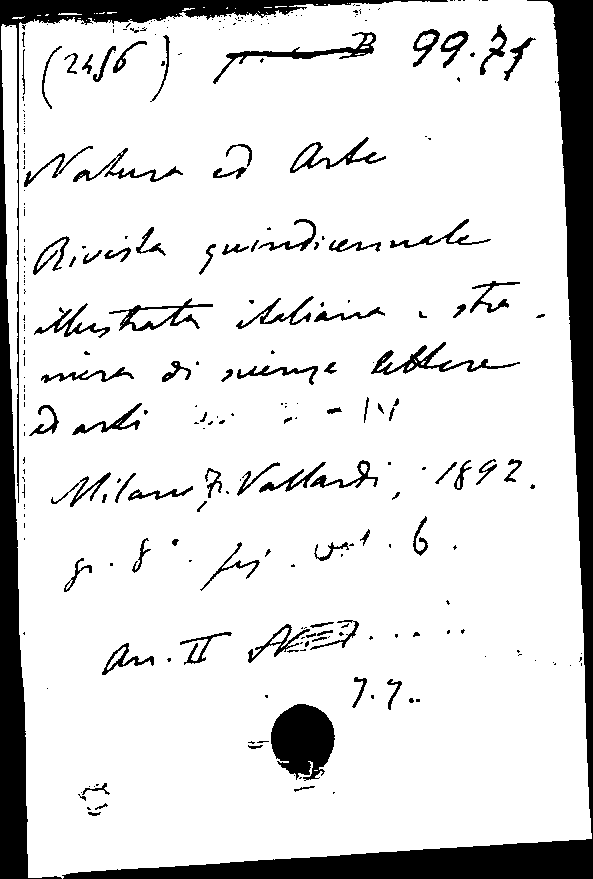 (2456) B 99.71
Natura ed Arte
Rivista quindicennale
illustrata italiana e stra-
niera di scienze lettere
ed arti - IV
Milano, Fr. Vallardi, 1892.
gr. 8°. fig. vol. 6.
An. II
7.7..